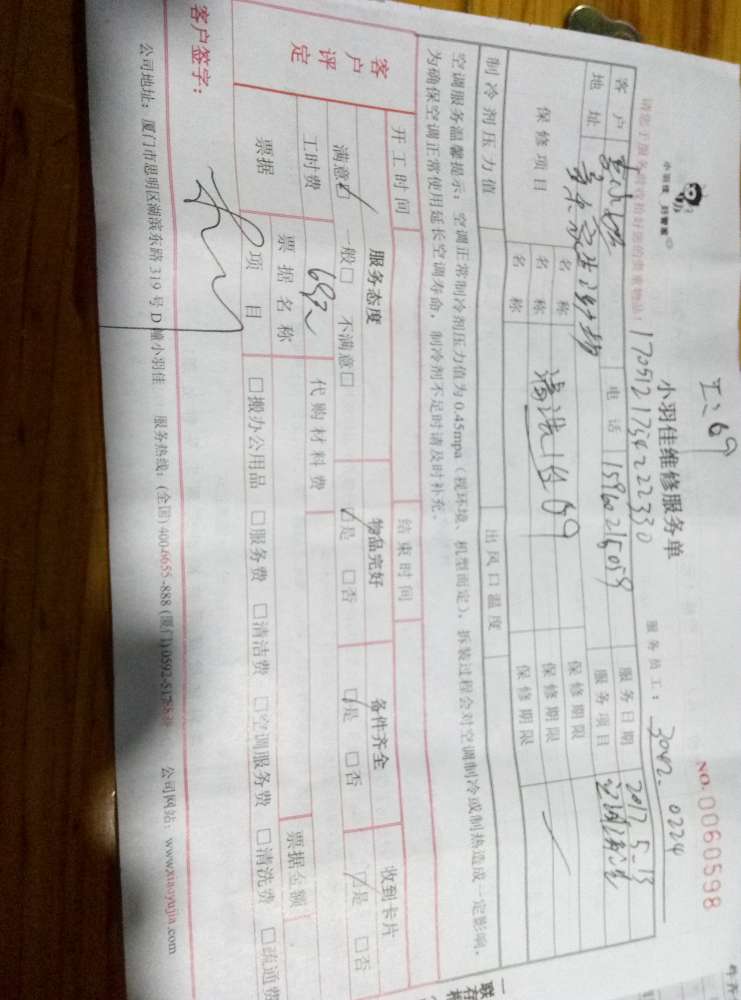 工:69
小羽佳 好管家
小羽佳维修服务单
NO. 0060598
请您于服务前收拾好您的贵重物品！
170512173422330
服务员工： 3042-0224
客户
电话 15960215059
服务日期 2017-5-13
地址
服务项目
保修项目
名称
保修期限
名称 清洗1台69
保修期限
名称
保修期限
制冷剂压力值
出风口温度
空调服务温馨提示：空调正常制冷剂压力值为0.45mpa（视环境、机型而定），拆装过程会对空调制冷或制热造成一定影响，
为确保空调正常使用延长空调寿命，制冷剂不足时请及时补充。
客户评定
开工时间
结束时间
服务态度
物品完好
备件齐全
收到卡片
满意☑ 一般□ 不满意□
☑是 □否
☑是 □否
☑是 □否
工时费 69元
代购材料费
票据
票据名称
票据金额
项目
□搬办公用品 □服务费 □清洁费 □空调服务费 □清洗费 □疏通费
客户签字：
公司地址：厦门市思明区湖滨东路319号D幢小羽佳 服务热线：(全国)400-6655-888 (厦门)0592-5178 公司网站：www.xiaoyujia.com